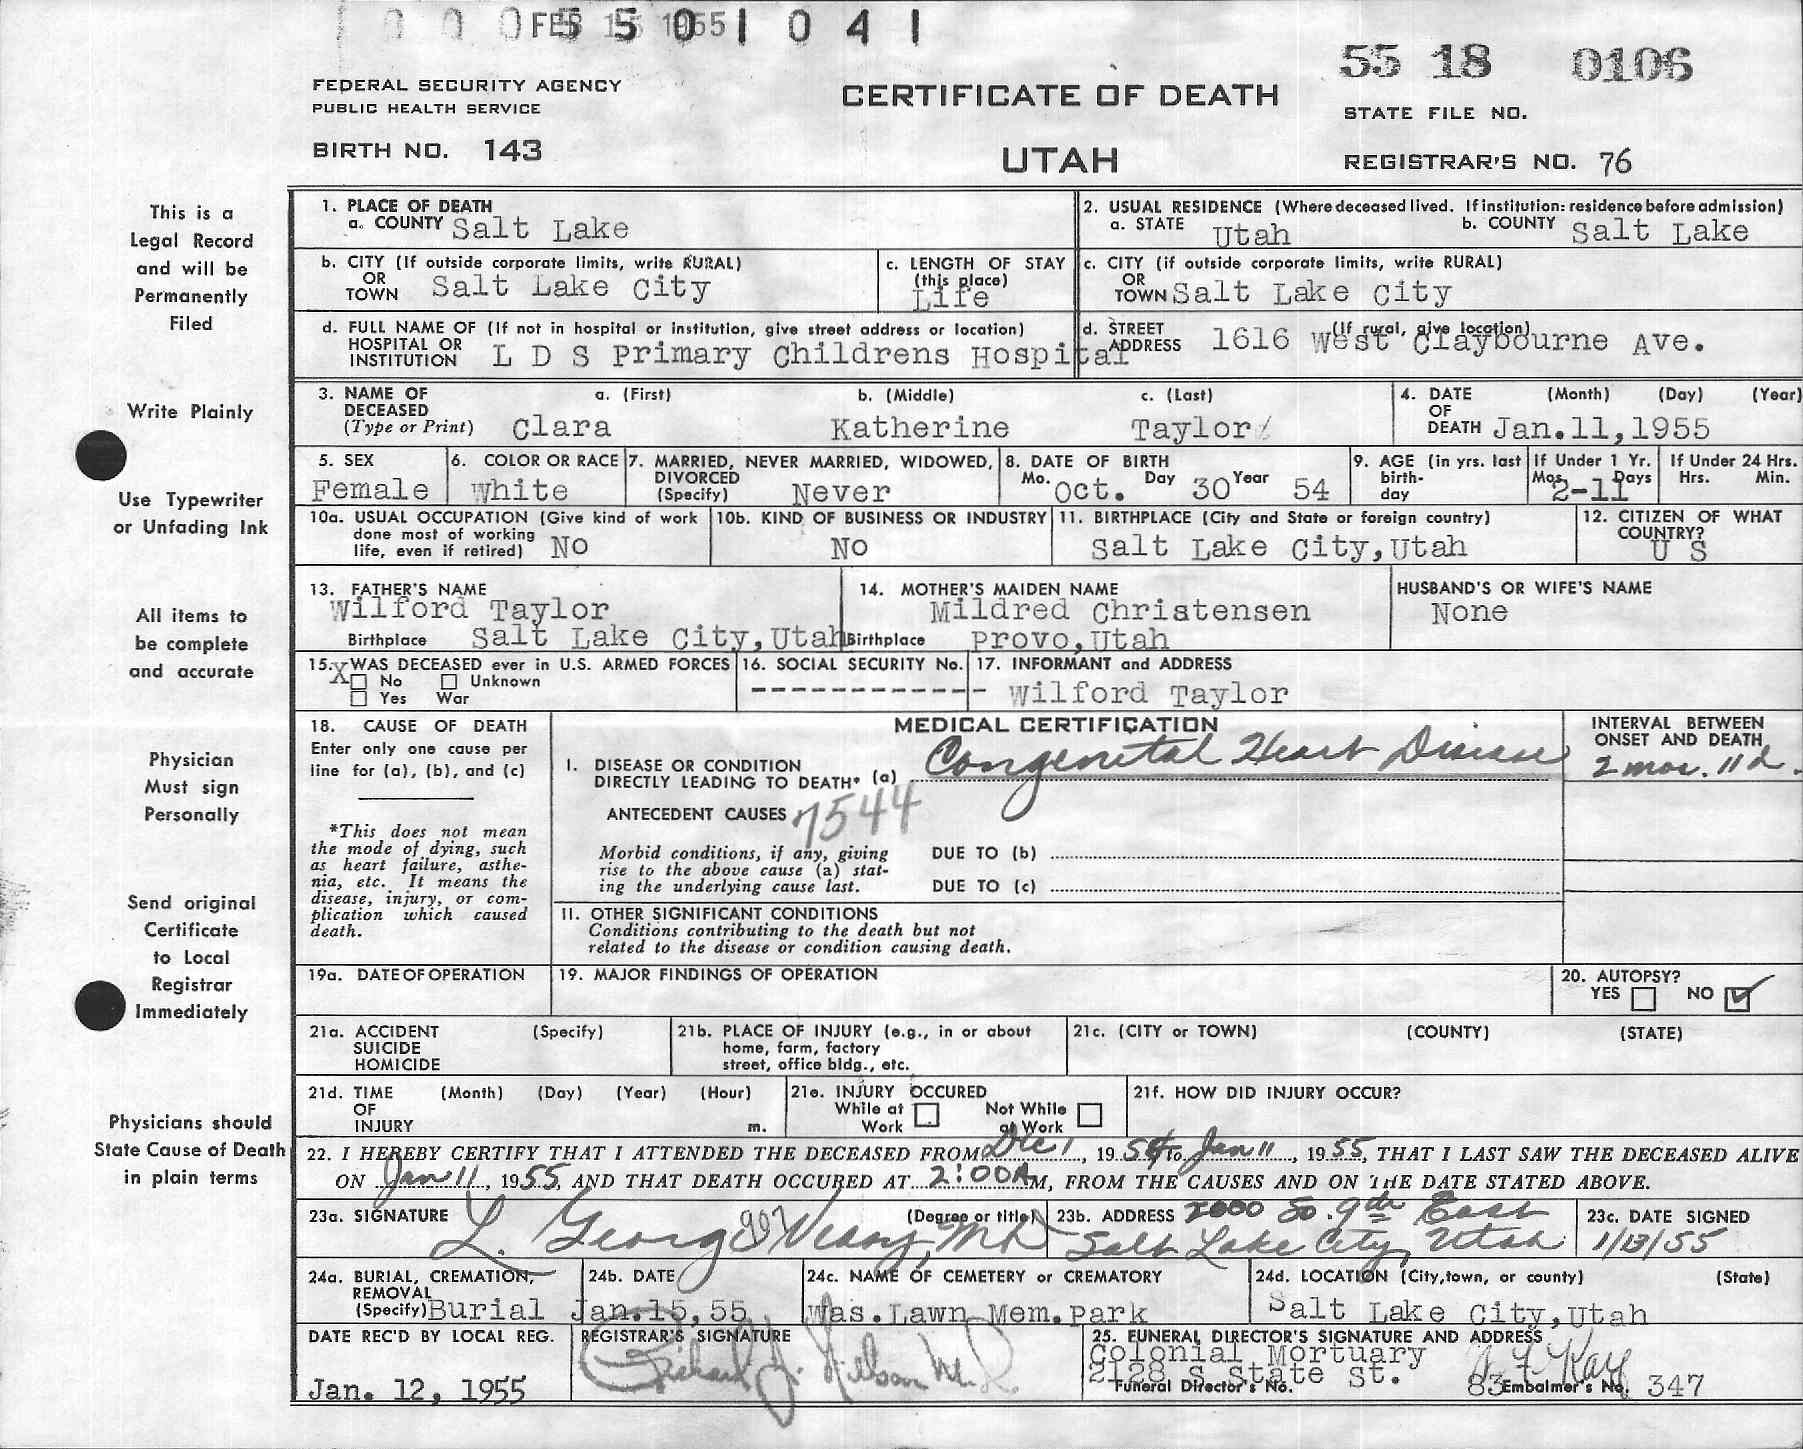 FEB 15 1955
5 5 0 1 0 4 1
55 18 0106
FEDERAL SECURITY AGENCY
PUBLIC HEALTH SERVICE
CERTIFICATE OF DEATH
STATE FILE NO.
BIRTH NO. 143
UTAH
REGISTRAR'S NO. 76
This is a
Legal Record
and will be
Permanently
Filed
Write Plainly
Use Typewriter
or Unfading Ink
All items to
be complete
and accurate
Physician
Must sign
Personally
Send original
Certificate
to Local
Registrar
Immediately
Physicians should
State Cause of Death
in plain terms
1. PLACE OF DEATH
a. COUNTY Salt Lake
2. USUAL RESIDENCE (Where deceased lived. If institution: residence before admission)
a. STATE Utah b. COUNTY Salt Lake
b. CITY (If outside corporate limits, write RURAL)
OR
TOWN Salt Lake City
c. LENGTH OF STAY
(this place)
Life
c. CITY (if outside corporate limits, write RURAL)
OR
TOWN Salt Lake City
d. FULL NAME OF (If not in hospital or institution, give street address or location)
HOSPITAL OR
INSTITUTION L D S Primary Childrens Hospital
d. STREET (If rural, give location)
ADDRESS 1616 West Claybourne Ave.
3. NAME OF a. (First) b. (Middle) c. (Last)
DECEASED
(Type or Print) Clara Katherine Taylor
4. DATE (Month) (Day) (Year)
OF
DEATH Jan.11,1955
5. SEX
Female
6. COLOR OR RACE
White
7. MARRIED, NEVER MARRIED, WIDOWED,
DIVORCED
(Specify) Never
8. DATE OF BIRTH
Mo. Oct. Day 30 Year 54
9. AGE (in yrs. last
birth-
day
If Under 1 Yr.
Mos. Days
2-11
If Under 24 Hrs.
Hrs. Min.
10a. USUAL OCCUPATION (Give kind of work
done most of working
life, even if retired) No
10b. KIND OF BUSINESS OR INDUSTRY
No
11. BIRTHPLACE (City and State or foreign country)
Salt Lake City,Utah
12. CITIZEN OF WHAT
COUNTRY?
U S
13. FATHER'S NAME
Wilford Taylor
Birthplace Salt Lake City,Utah
14. MOTHER'S MAIDEN NAME
Mildred Christensen
Birthplace Provo,Utah
HUSBAND'S OR WIFE'S NAME
None
15. WAS DECEASED ever in U.S. ARMED FORCES
X No Unknown
Yes War
16. SOCIAL SECURITY No.
------------
17. INFORMANT and ADDRESS
Wilford Taylor
18. CAUSE OF DEATH
Enter only one cause per
line for (a), (b), and (c)
*This does not mean
the mode of dying, such
as heart failure, asthe-
nia, etc. It means the
disease, injury, or com-
plication which caused
death.
MEDICAL CERTIFICATION
I. DISEASE OR CONDITION
DIRECTLY LEADING TO DEATH* (a) Congenital Heart Disease
INTERVAL BETWEEN
ONSET AND DEATH
2 mos. 11 d.
ANTECEDENT CAUSES 7544
Morbid conditions, if any, giving
rise to the above cause (a) stat-
ing the underlying cause last.
DUE TO (b)
DUE TO (c)
II. OTHER SIGNIFICANT CONDITIONS
Conditions contributing to the death but not
related to the disease or condition causing death.
19a. DATE OF OPERATION
19. MAJOR FINDINGS OF OPERATION
20. AUTOPSY?
YES NO ✓
21a. ACCIDENT (Specify)
SUICIDE
HOMICIDE
21b. PLACE OF INJURY (e.g., in or about
home, farm, factory
street, office bldg., etc.
21c. (CITY or TOWN) (COUNTY) (STATE)
21d. TIME (Month) (Day) (Year) (Hour)
OF
INJURY m.
21e. INJURY OCCURED
While at Not While
Work at Work
21f. HOW DID INJURY OCCUR?
22. I HEREBY CERTIFY THAT I ATTENDED THE DECEASED FROM Dec 1, 1954 to Jan 11, 1955, THAT I LAST SAW THE DECEASED ALIVE
ON Jan 11, 1955, AND THAT DEATH OCCURED AT 2:00 A M, FROM THE CAUSES AND ON THE DATE STATED ABOVE.
23a. SIGNATURE (Degree or title)
L. George Veasy, MD
23b. ADDRESS 2000 So. 9th East
Salt Lake City, Utah
23c. DATE SIGNED
1/13/55
24a. BURIAL, CREMATION,
REMOVAL
(Specify) Burial
24b. DATE
Jan.15,55
24c. NAME OF CEMETERY or CREMATORY
Was.Lawn Mem.Park
24d. LOCATION (City,town, or county) (State)
Salt Lake City,Utah
DATE REC'D BY LOCAL REG.
Jan. 12, 1955
REGISTRAR'S SIGNATURE
Richard J. Nelson M.D.
25. FUNERAL DIRECTOR'S SIGNATURE AND ADDRESS
Colonial Mortuary
2128 S State St.
Funeral Director's No. 83 Embalmer's No. 347